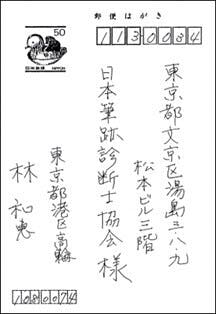 郵便はがき
50
日本郵便
113-0034
東京都文京区湯島三-八-九
松本ビル三階
日本筆跡診断士協会 様
東京都港区高輪
林 和恵
108-0074